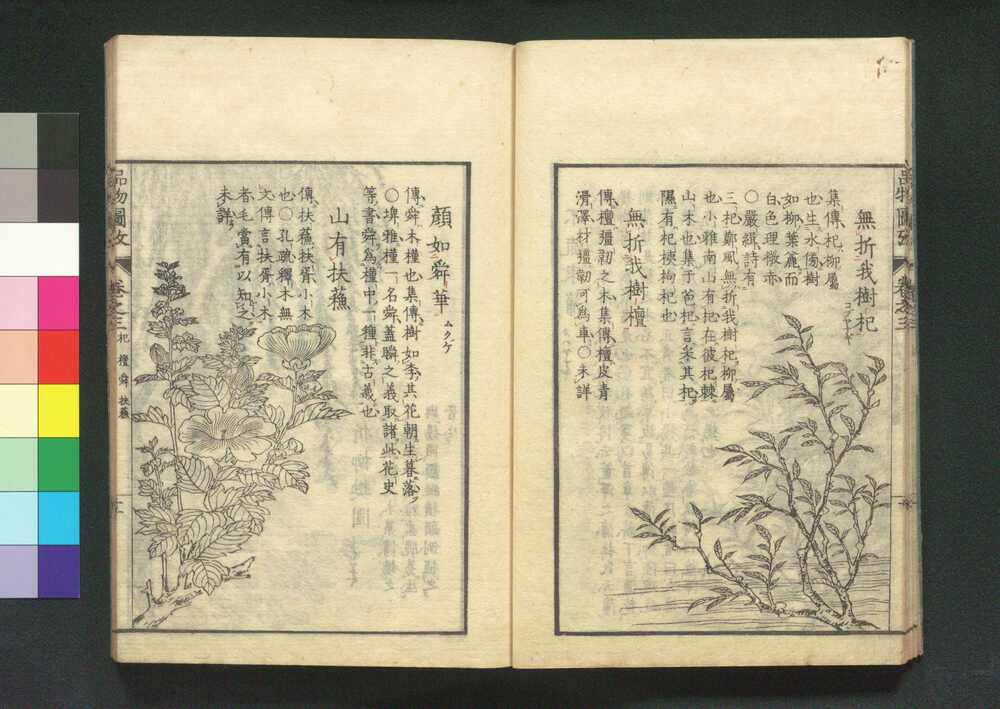 無折我樹杞
コブヤナギ
集傳杞柳屬
也生水傍樹
如柳葉麁而
白色理微赤
〇嚴緝詩有
三杞鄭風無折我樹杞柳屬
也小雅南山有杞在彼杞棘
山木也集于苞杞言采其杞
隰有杞桋枸杞也
無折我樹檀
傳檀彊韌之木集傳檀皮青
滑澤材彊韌可為車〇未詳
品物圖攷
卷之三
顔如舜華
ムクゲ
傳舜木槿也集傳樹如李其花朝生暮落
〇埤雅槿一名舜蓋瞬之義取諸此花史
等書舜為槿中一種非古義也
山有扶蘓
傳扶蘓扶胥小木
也〇孔疏釋木無
文傳言扶胥小木
者毛當有以知之
未詳
品物圖攷
卷之三
杞 檀 舜 扶蘓